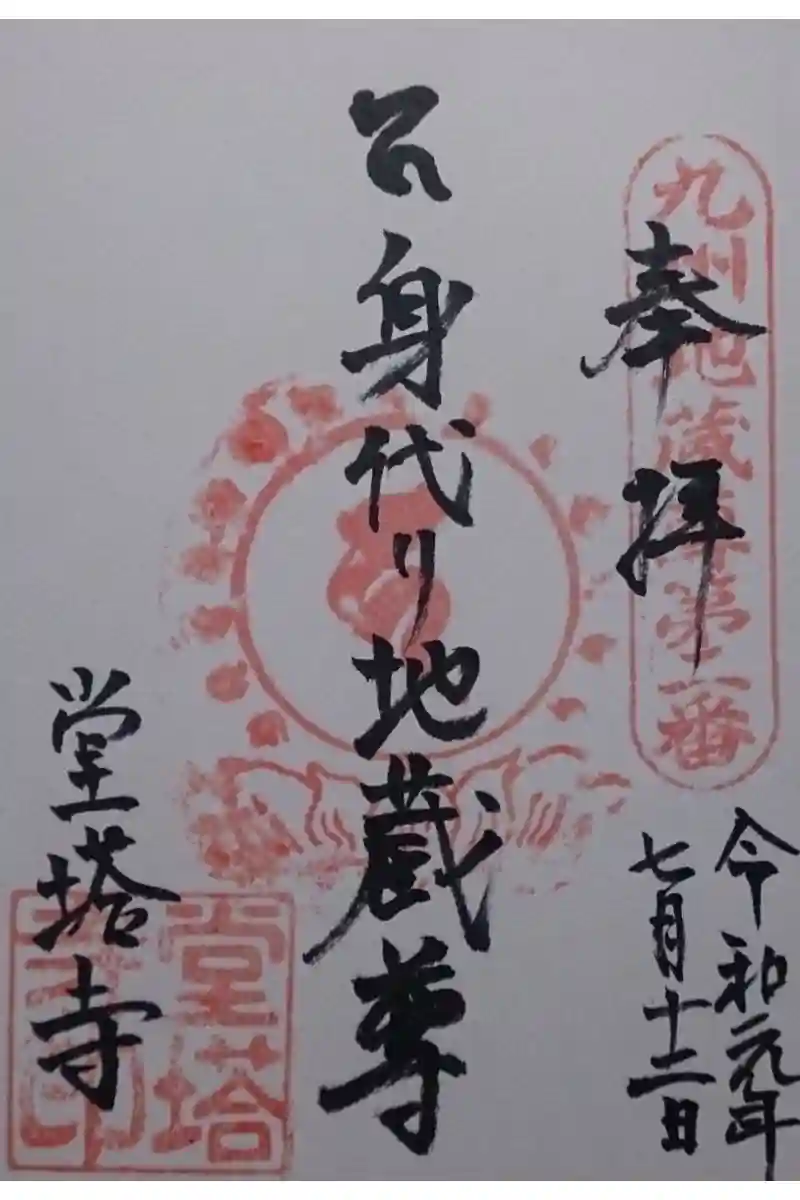 九州地蔵尊第二番
奉拝
令和元年
七月十二日
身代り地蔵尊
堂塔寺
堂塔
寺印